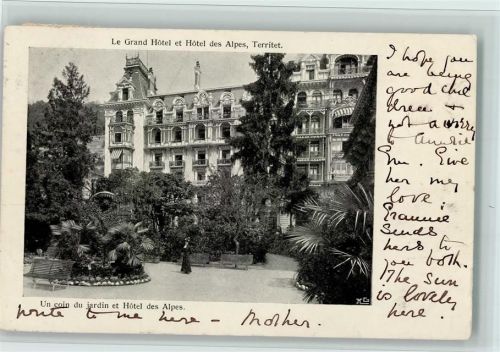 Le Grand Hôtel et Hôtel des Alpes, Territet.
I hope you
are being
good chil
dren &
not a worry
to
Em. Give
her my
love.
Grannie
sends
hers to
you both.
The Sun
is lovely
here.
Un coin du jardin et Hôtel des Alpes.
write to me here - Mother.